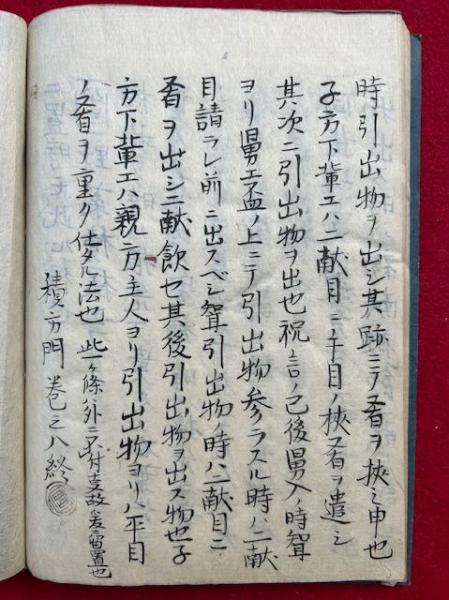 時引出物ヲ出シ其跡ニテ肴ヲ挾ミ申也
子方下輩エハ二献目ニ平目ノ挾肴ヲ遣シ
其次ニ引出物ヲ出也祝言ノ已後舅入ノ時聟
ヨリ舅エ盃ノ上ニテ引出物参ラスル時ハ二献
目請ラレ前ニ出スベシ聟引出物ノ時ハ二献目ニ
肴ヲ出シ二献飲セ其後引出物ヲ出ス物也子
方下輩エハ親方主人ヨリ引出物ヨリハ平目
ノ肴ヲ重ク仕タル法也 此一ヶ條外ニ
置也
積方門 巻之八終